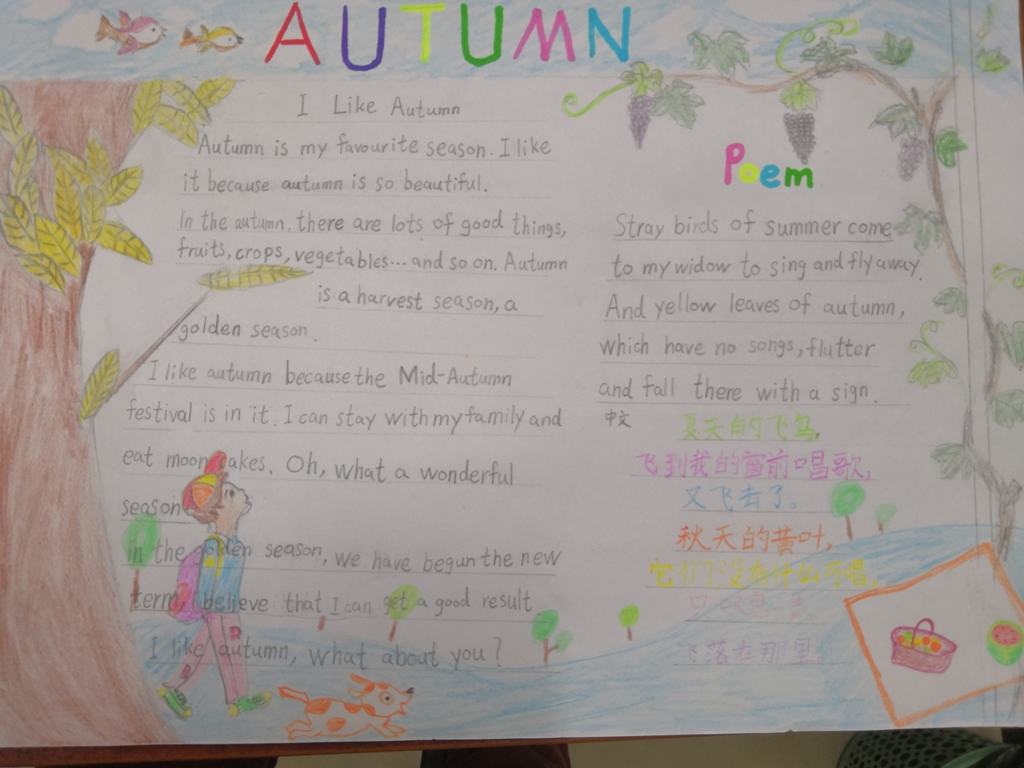 AUTUMN
I Like Autumn
Autumn is my favourite season. I like
it because autumn is so beautiful.
In the autumn, there are lots of good things,
fruits, crops, vegetables... and so on. Autumn
is a harvest season, a
golden season.
I like autumn because the Mid-Autumn
festival is in it. I can stay with my family and
eat moon akes. Oh, what a wonderful
season
in the golden season, we have begun the new
term, I believe that I can get a good result
I like autumn, what about you?
Poem
Stray birds of summer come
to my widow to sing and fly away.
And yellow leaves of autumn,
which have no songs, flutter
and fall there with a sign.
中文
夏天的飞鸟,
飞到我的窗前唱歌,
又飞去了。
秋天的黄叶,
它们没有什么可唱,
飞落在那里。